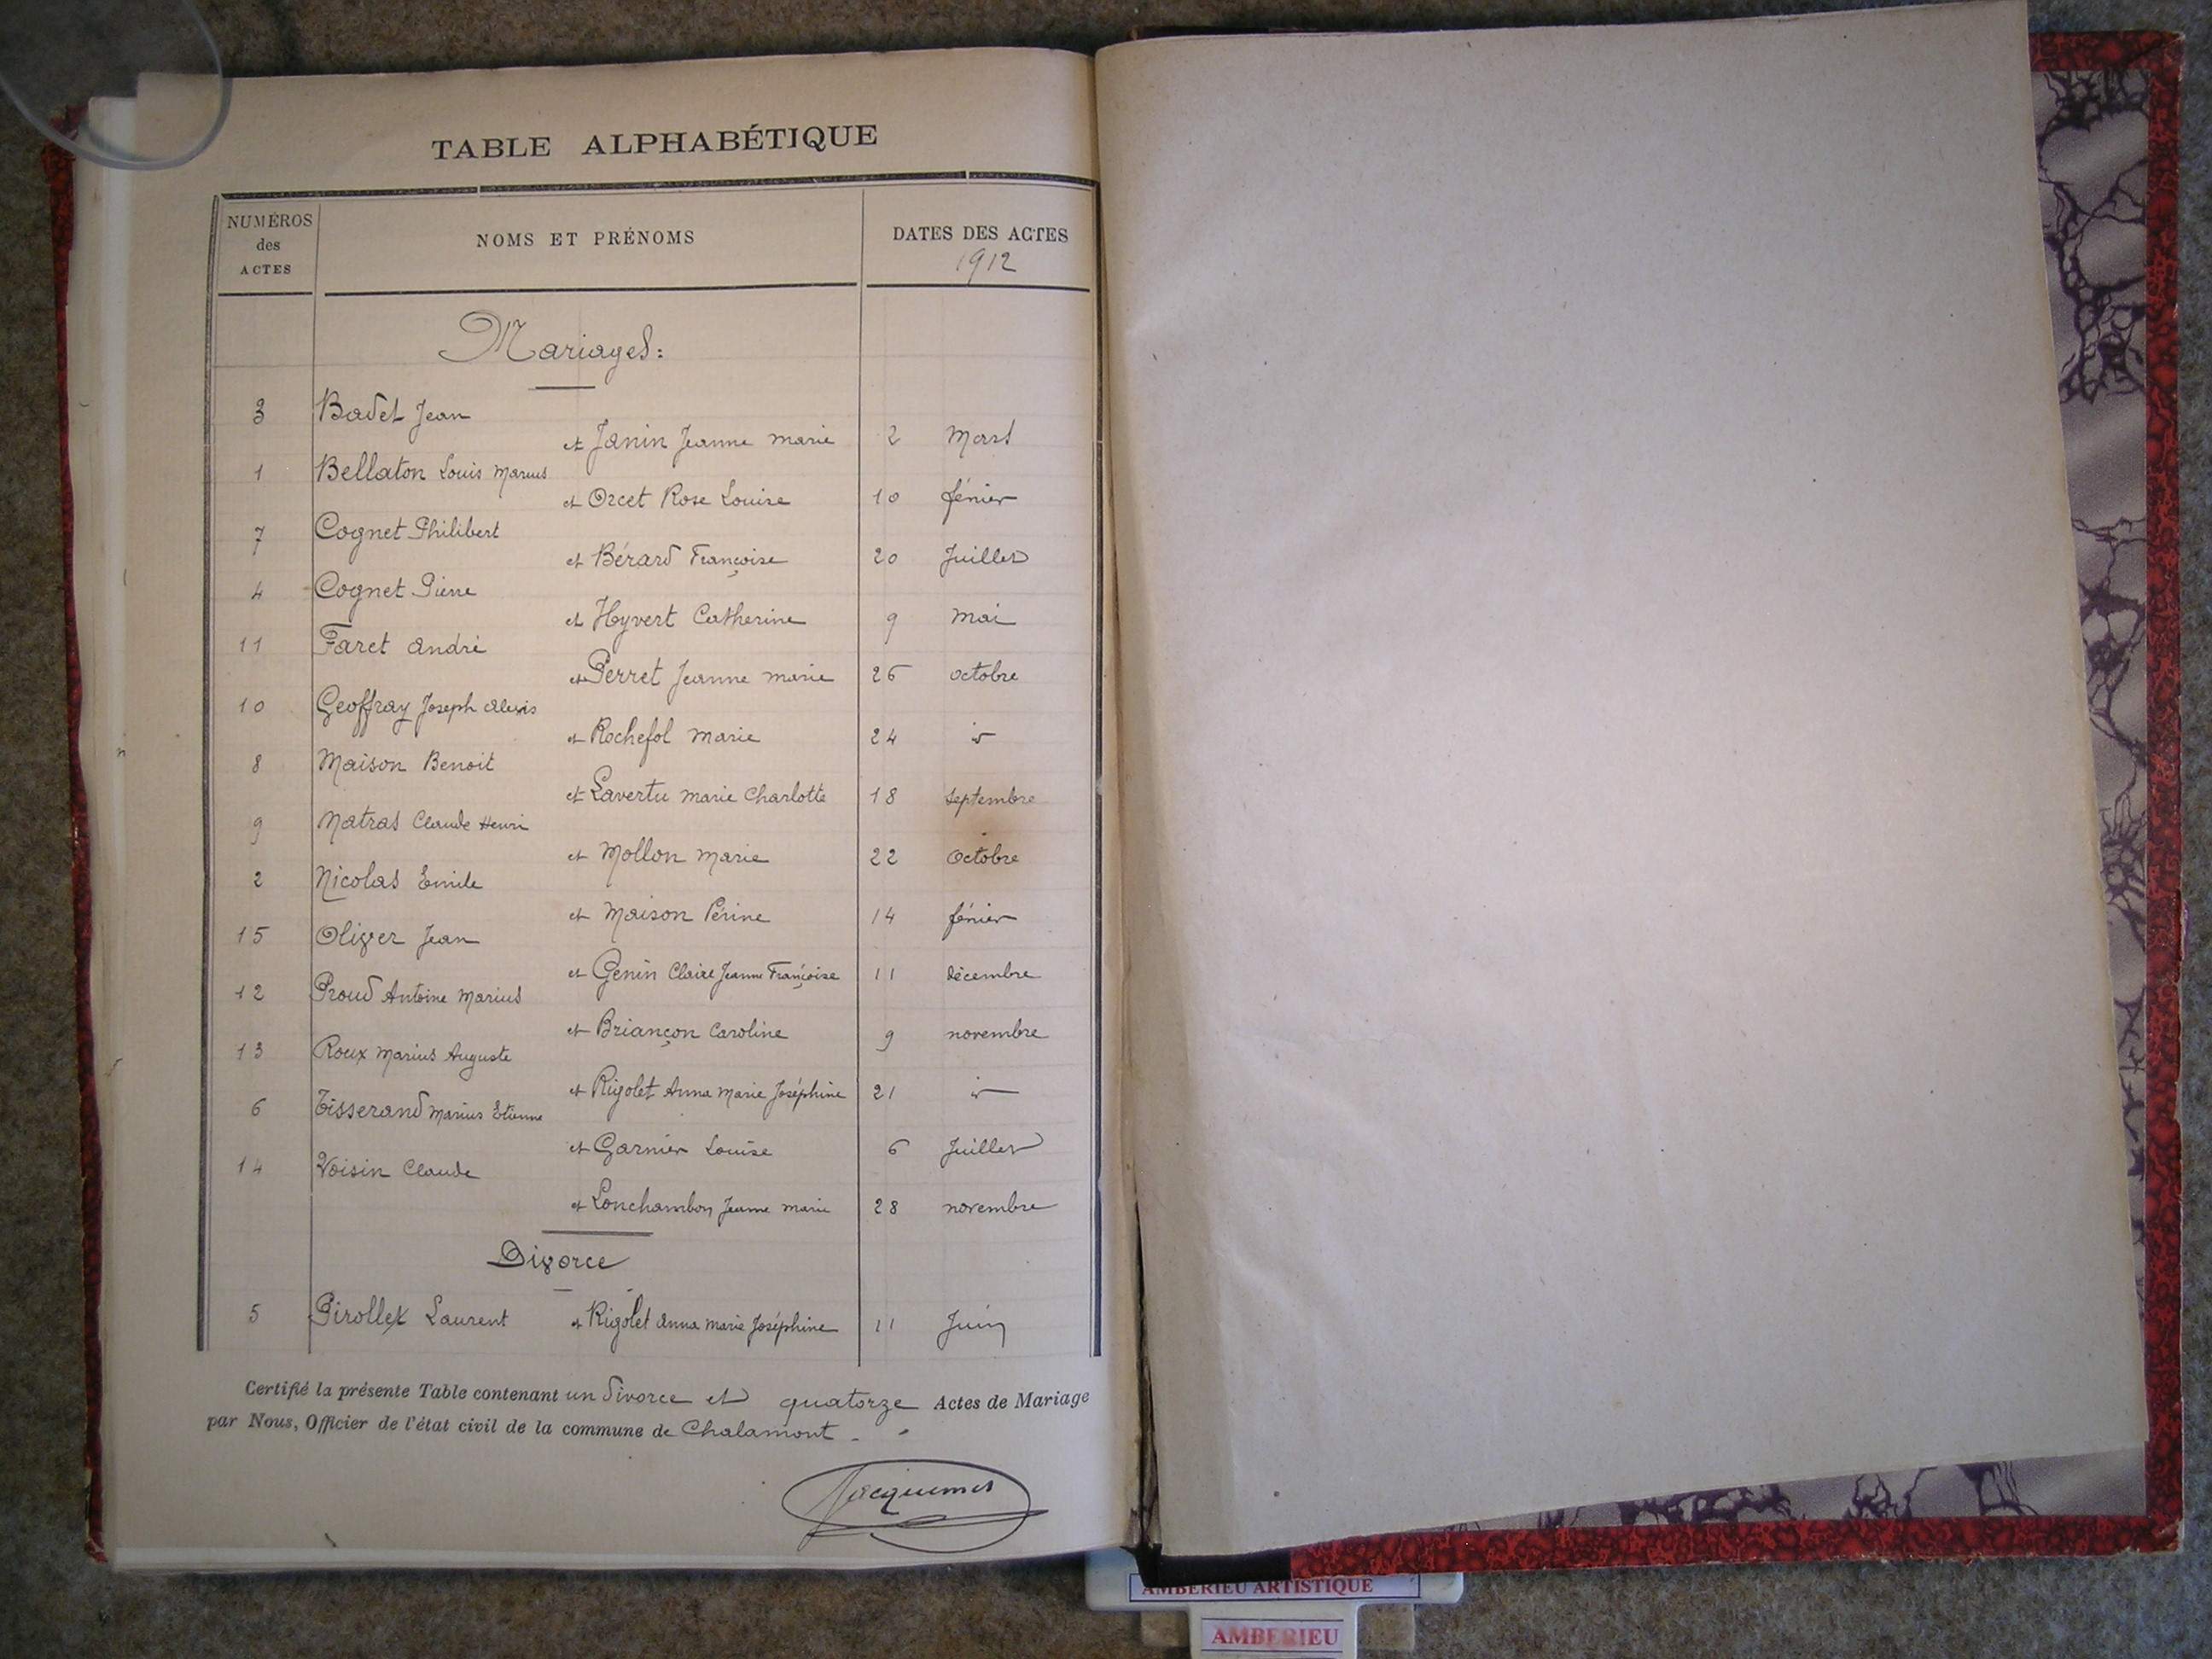 TABLE ALPHABÉTIQUE
NUMÉROS des ACTES
NOMS ET PRÉNOMS
DATES DES ACTES
1912
Mariages:
3 Badet Jean
et Janin Jeanne marie 2 Mars
1 Bellaton Louis Marius
et Orcet Rose Louise 10 février
7 Cognet Philibert
et Bérard Françoise 20 Juillet
4 Cognet Pierre
et Hyvert Catherine 9 mai
11 Faret andré
et Perret Jeanne marie 26 octobre
10 Geoffray Joseph alexis
et Rochefol marie 24 id
8 Maison Benoit
et Lavertu marie Charlotte 18 septembre
9 Matras Claude Henri
et Mollon marie 22 octobre
2 Nicolas Emile
et Maison Périne 14 février
15 Olivier Jean
et Genin Claire Jeanne Françoise 11 décembre
12 Proud Antoine Marius
et Briançon Caroline 9 novembre
13 Roux Marius Auguste
et Rigolet Anna Marie Joséphine 21 id
6 Tisserand Marius Etienne
et Garnier Louise 6 Juillet
14 Voisin Claude
et Lonchambon Jeanne marie 28 novembre
Divorce
5 Pirollet Laurent et Rigolet anna marie Joséphine 11 Juin
Certifié la présente Table contenant un divorce et quatorze Actes de Mariage
par Nous, Officier de l'état civil de la commune de Chalamont
AMBERIEU ARTISTIQUE
AMBERIEU